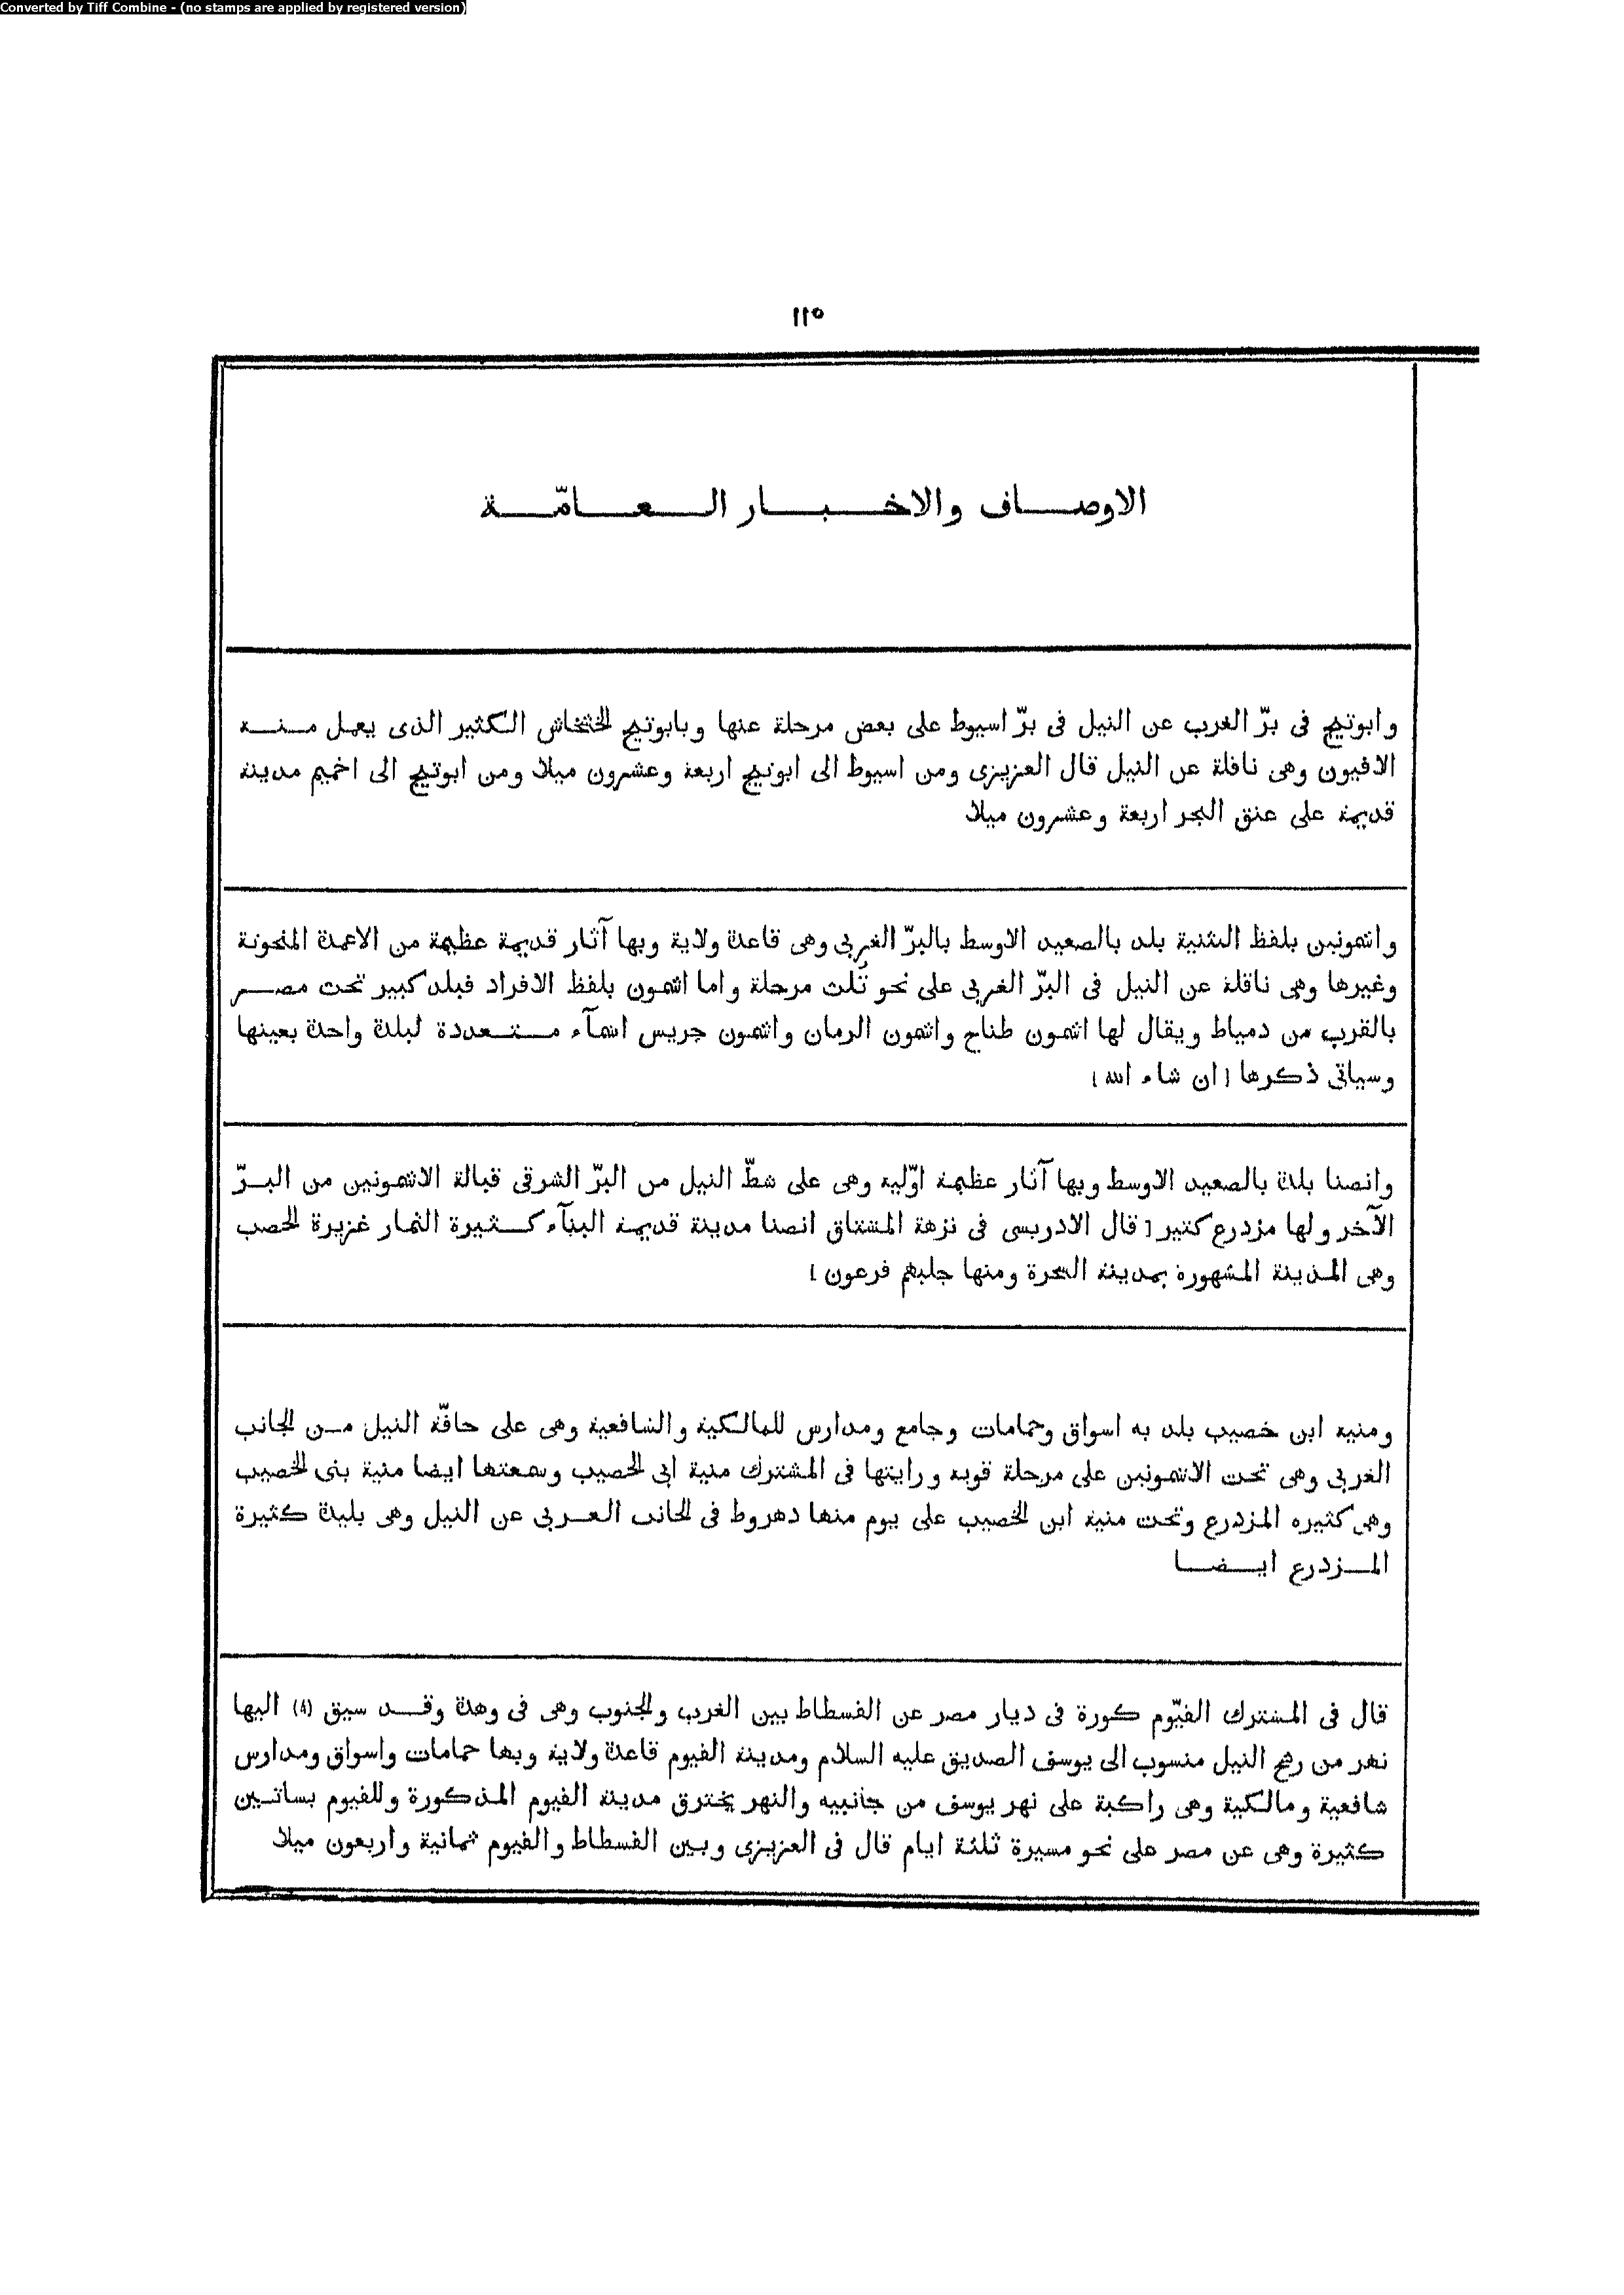 Converted by Tiff Combine - (no stamps are applied by registered version)
١١٥
الاوصاف والاخبار العامّة
وابوتيج فى برّ الغرب عن النيل فى برّ اسيوط على بعض مرحلة عنها وبابوتيج الخشخاش الكثير الذى يعمل منه
الافيون وهى ناقلة عن النيل قال العزيزى ومن اسيوط الى ابوتيج اربعة وعشرون ميلا ومن ابوتيج الى اخميم مدينة
قديمة على عنق البحر اربعة وعشرون ميلا
واشمونين بلفظ التثنية بلد بالصعيد الاوسط بالبرّ الغربى وهى قاعدة ولاية وبها آثار قديمة عظيمة من الاعمدة المنحوتة
وغيرها وهى ناقلة عن النيل فى البرّ الغربى على نحو ثلث مرحلة واما اشمون بلفظ الافراد فبلد كبير تحت مصر
بالقرب من دمياط ويقال لها اشمون طناح واشمون الرمان واشمون جريس اسمآء متعددة لبلدة واحدة بعينها
وسياتى ذكرها [ان شاء الله]
وانصنا بلدة بالصعيد الاوسط وبها آثار عظيمة اوّلية وهى على شطّ النيل من البرّ الشرقى قبالة الاشمونين من البرّ
الآخر ولها مزدرع كثير [قال الادريسى فى نزهة المشتاق انصنا مدينة قديمة البنآء كثيرة الثمار غزيرة الخصب
وهى المدينة المشهورة بمدينة السحرة ومنها جلبهم فرعون]
ومنية ابن خصيب بلد به اسواق وحمامات وجامع ومدارس للمالكية والشافعية وهى على حافّة النيل من الجانب
الغربى وهى تحت الاشمونين على مرحلة قوية ورايتها فى المشترك منية ابى الخصيب وسمعتها ايضا منية بنى الخصيب
وهى كثيره المزدرع وتحت منية ابن الخصيب على يوم منها دهروط فى الجانب الغربى عن النيل وهى بليدة كثيرة
المزدرع ايضا
قال فى المشترك الفيّوم كورة فى ديار مصر عن الفسطاط بين الغرب والجنوب وهى فى وهدة وقد سيق (٨) اليها
نهر من رشح النيل منسوب الى يوسف الصديق عليه السلام ومدينة الفيوم قاعدة ولاية وبها حمامات واسواق ومدارس
شافعية ومالكية وهى راكبة على نهر يوسف من جانبيه والنهر يخترق مدينة الفيوم المذكورة وللفيوم بساتين
كثيرة وهى عن مصر على نحو مسيرة ثلثة ايام قال فى العزيزى وبين الفسطاط والفيوم ثمانية واربعون ميلا